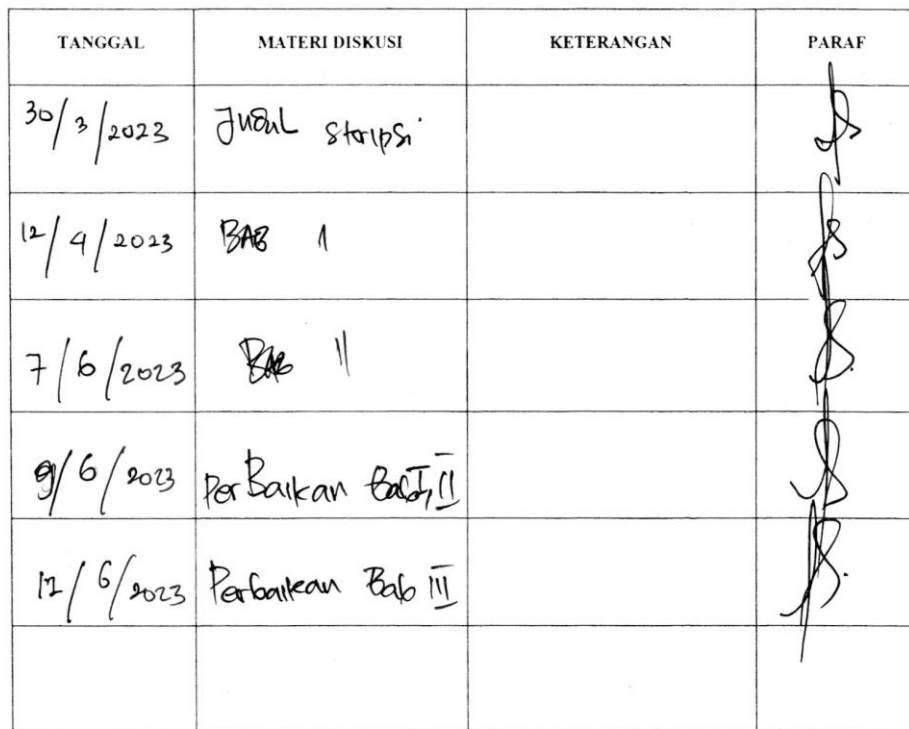 TANGGAL MATERI DISKUSI KETERANGAN PARAF
30/3/2023 Judul skripsi
12/4/2023 BAB 1
7/6/2023 BAB II
9/6/2023 Perbaikan Bab I, II
12/6/2023 Perbaikan Bab III